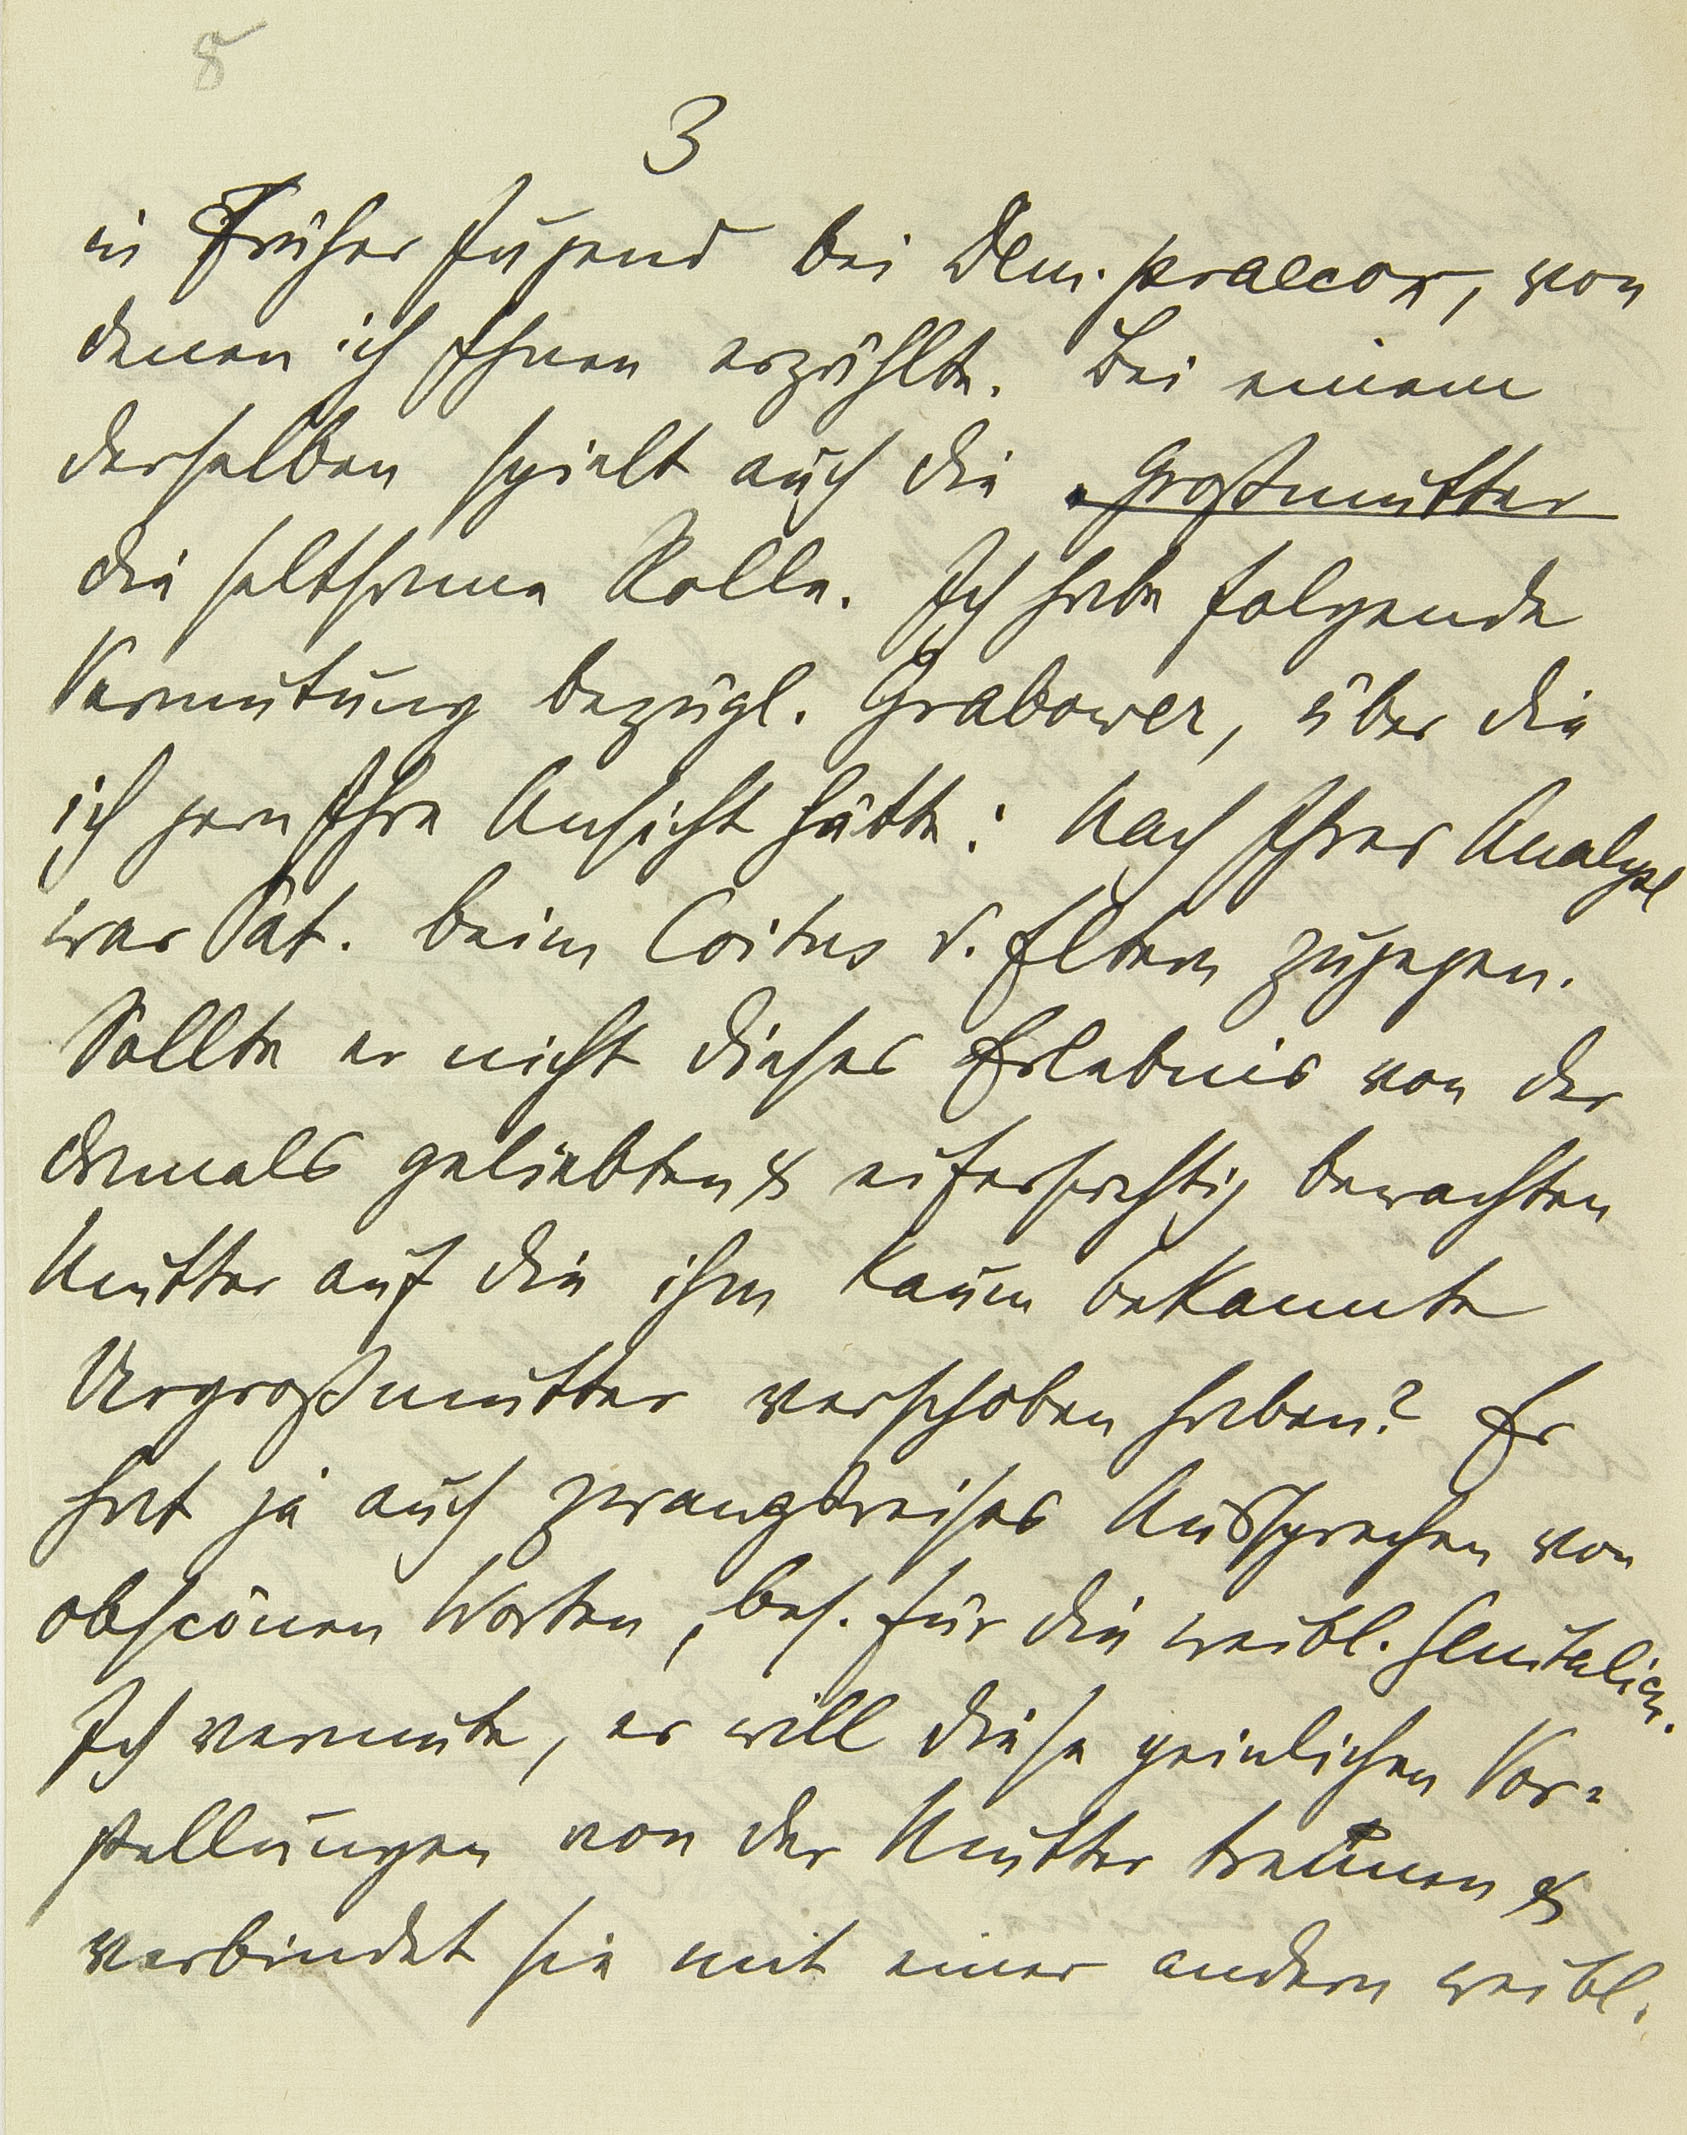 8
3
in früher Jugend bei Dem. praecox, von
denen ich Ihnen erzählte. Bei einem
derselben spielt auch die Großmutter
die seltsame Rolle. Ich habe folgende
Vermutung bezügl. Grabower, über die
ich gern Ihre Ansicht hätte: Nach Ihrer Analyse
war Pat. beim Coitus d. Eltern zugegen.
Sollte er nicht dieses Erlebnis von der
damals geliebten & eifersüchtig bewachten
Mutter auf die ihm kaum bekannte
Urgroßmutter verschoben haben? Er
hat ja auch zwangsweises Aussprechen von
obscönen Worten, bes. für die weibl. Genitalien.
Ich vermute, er will diese peinlichen Vor-
stellungen von der Mutter trennen &
verbindet sie mit einer andern weibl.